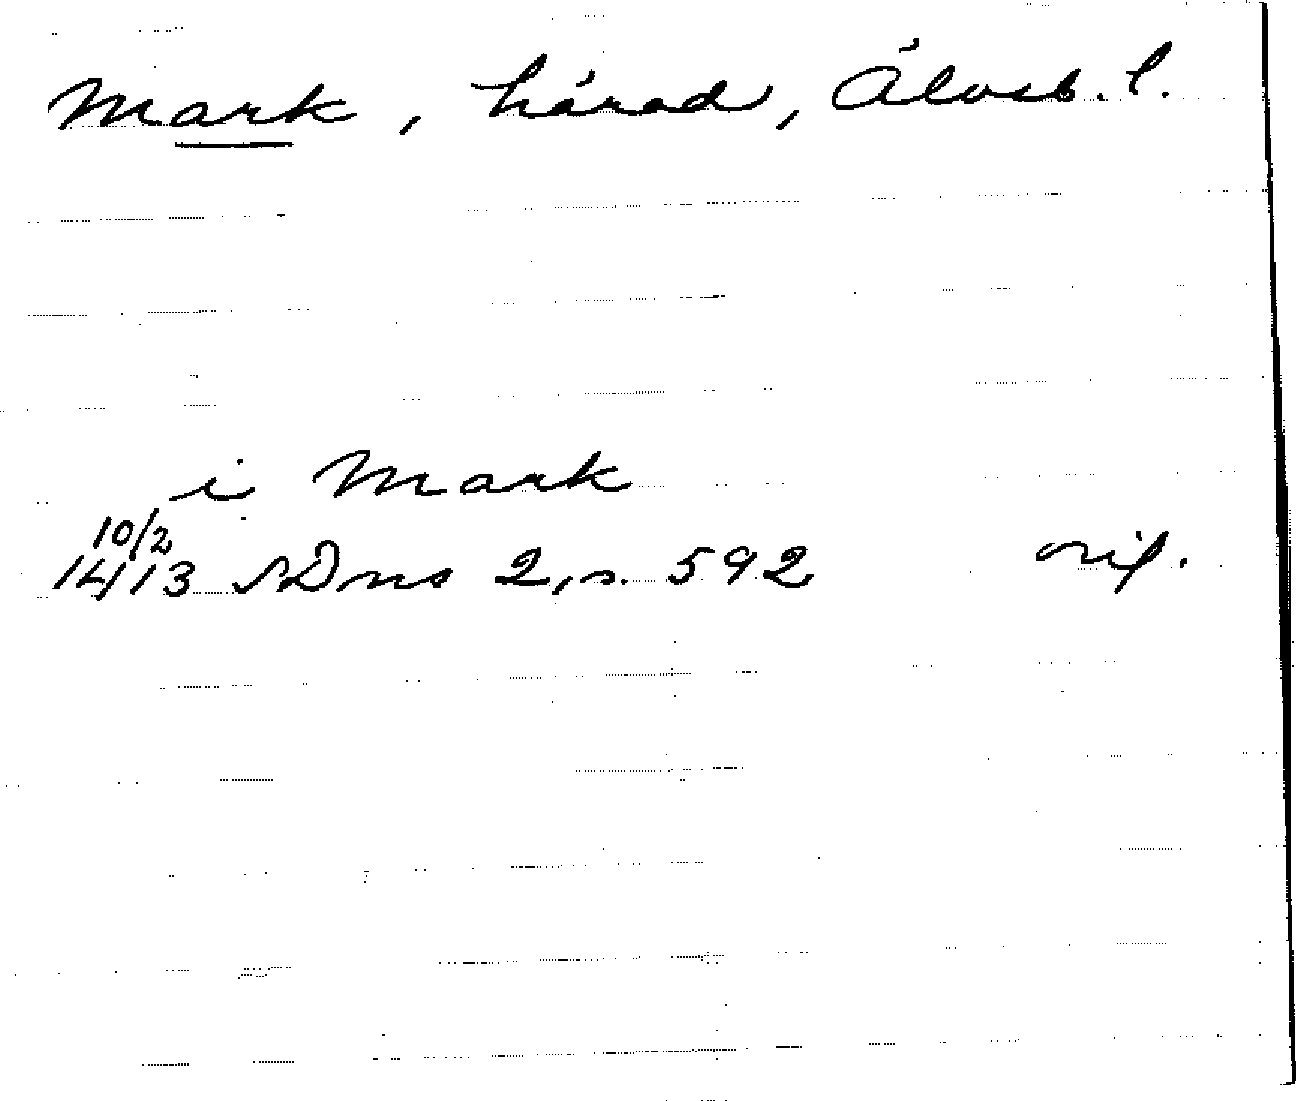 Mark, härad, Älvsb. l.
i Mark
10/2
1413 SDns 2, s. 592 orig.